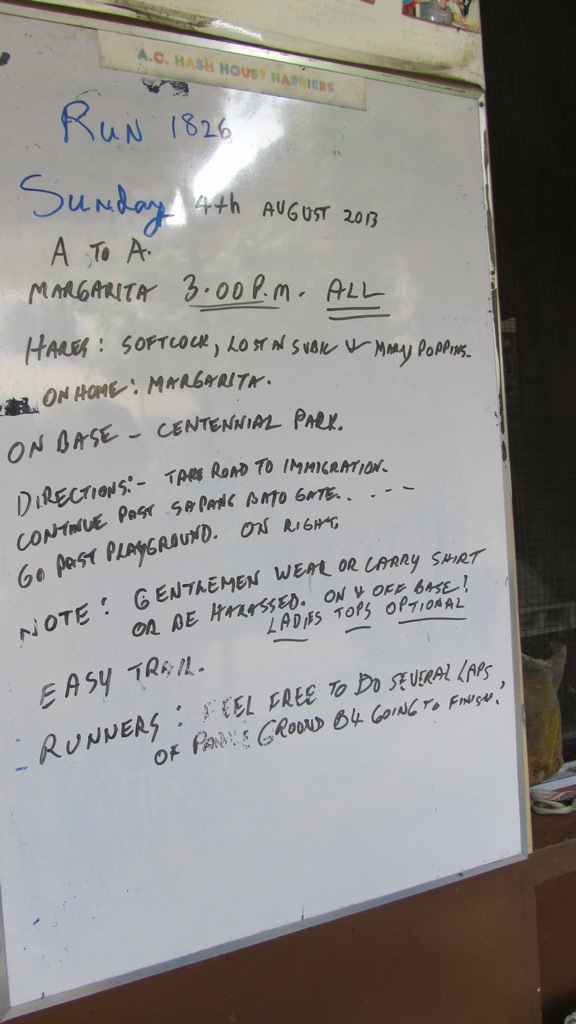 A.C. HASH HOUSE HARRIERS
RUN 1826
Sunday 4th AUGUST 2013
A TO A.
MARGARITA 3.00 P.M. ALL
HARES: SOFTCOCK, LOST N SUBIC & MARY POPPINS.
ON HOME: MARGARITA.
ON BASE - CENTENNIAL PARK.
DIRECTIONS:- TAKE ROAD TO IMMIGRATION.
CONTINUE PAST SAPANG BATO GATE. . - - -
GO PAST PLAYGROUND. ON RIGHT.
NOTE: GENTLEMEN WEAR OR CARRY SHIRT
OR BE HARASSED. ON & OFF BASE!
LADIES TOPS OPTIONAL
EASY TRAIL.
RUNNERS: FEEL FREE TO DO SEVERAL LAPS
OF GROUND B4 GOING TO FINISH!